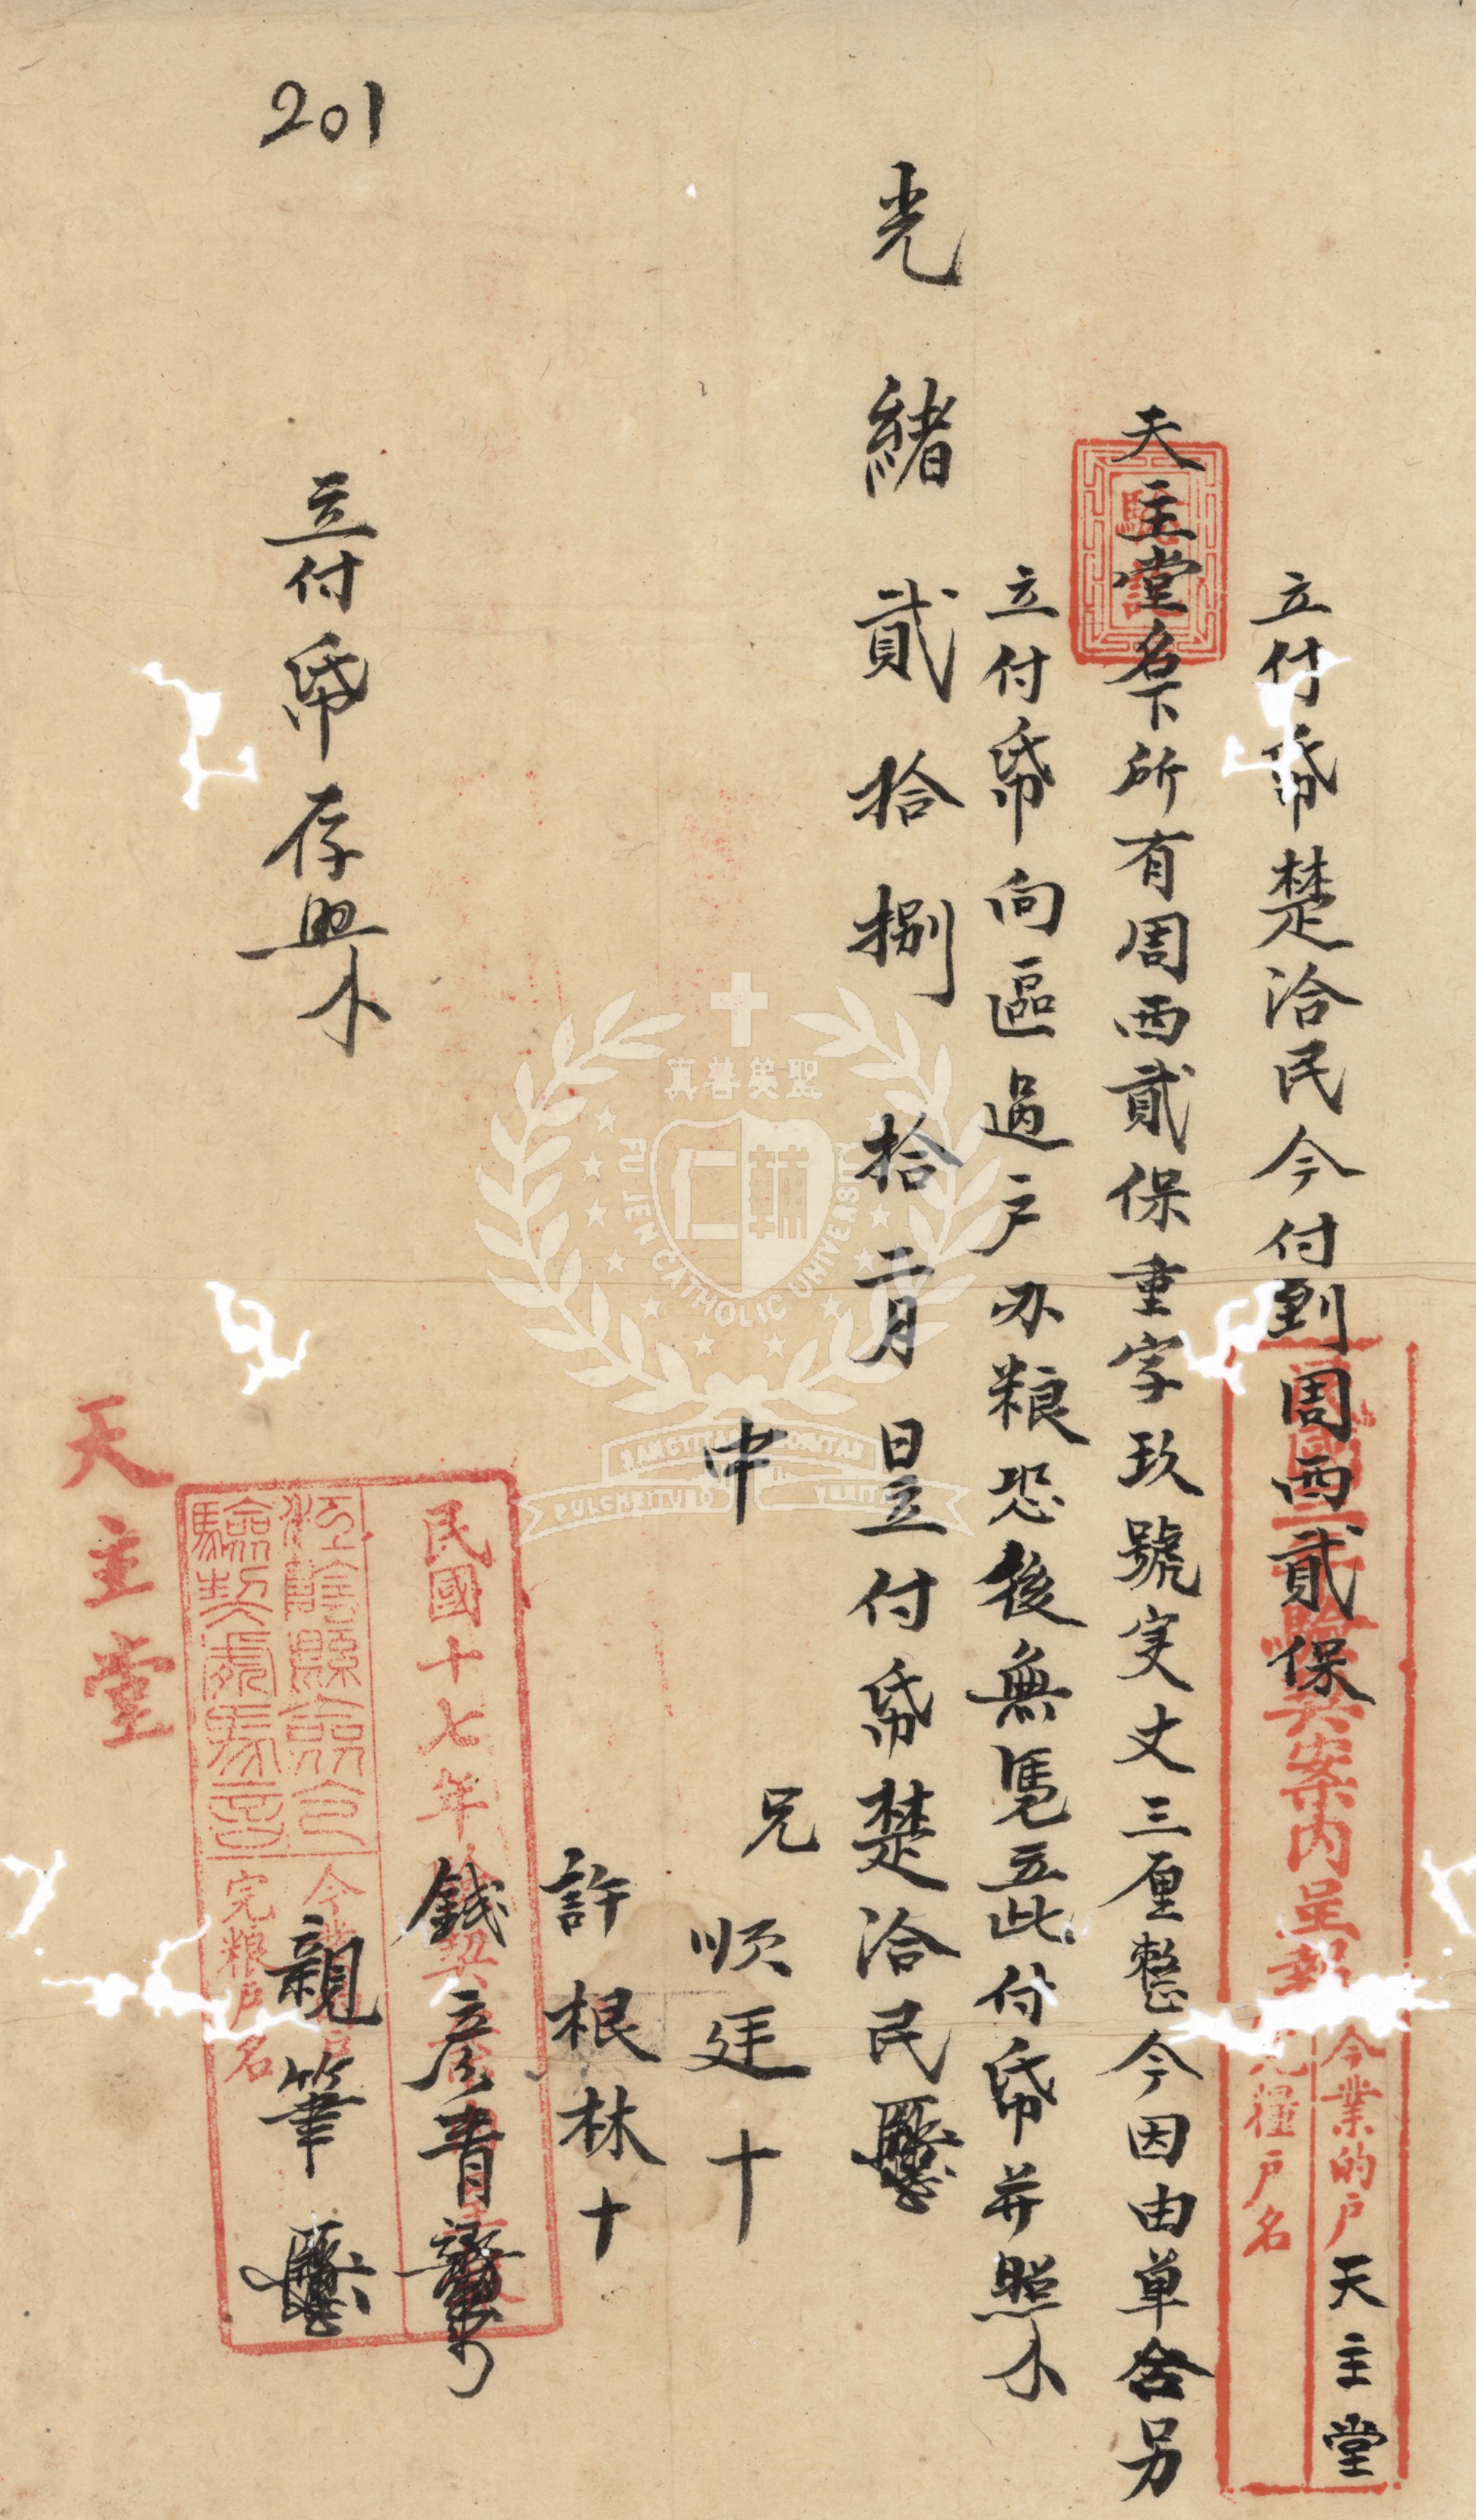 立付帋楚洽民今付到周西貳保
天主堂名下所有周西貳保重字玖號实丈三厘整今因由单舍另
立付帋向區過户办粮恐後無憑立此付帋并照
光緒貳拾捌年拾二月 日立付帋楚洽民
中
兄 顺廷十
許根林十
錢彦青
親筆
立付帋存照
201
天主堂
民國十七年
江陰縣
驗契處
完粮户名
驗契案内呈報
今業的户 天主堂
完糧户名
天主堂
聖美善真
FU JEN CATHOLIC UNIVERSITY